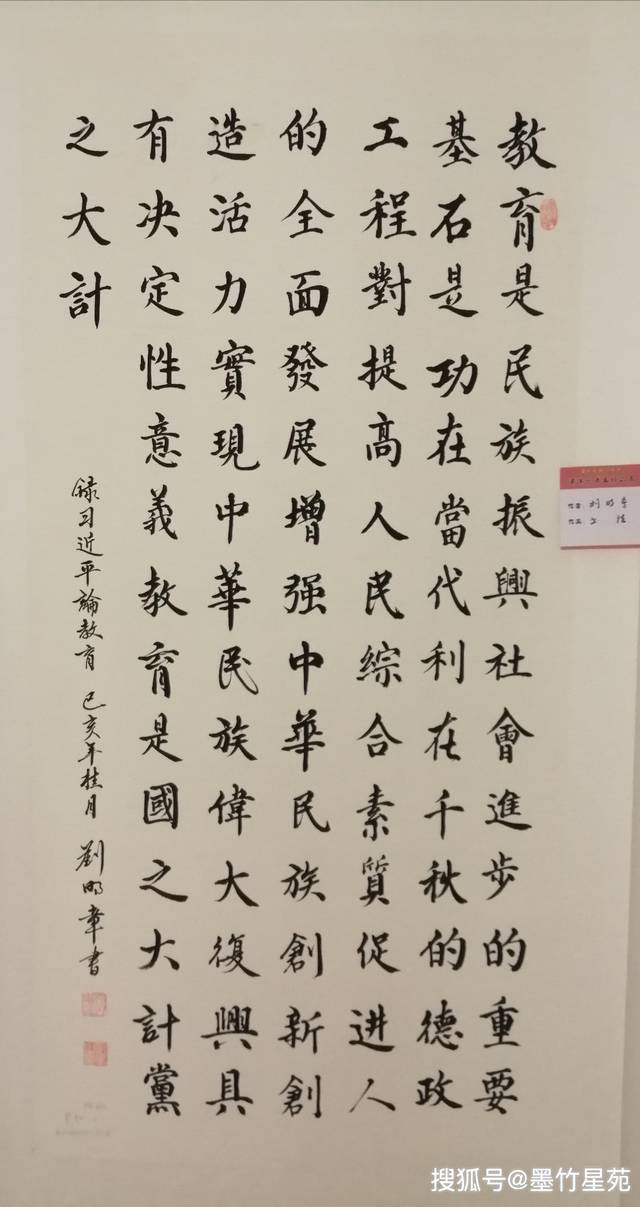 教育是民族振興社會進步的重要
基石是功在當代利在千秋的德政
工程對提高人民綜合素質促进人
的全面發展增强中華民族創新創
造活力實現中華民族偉大復興具
有决定性意義教育是國之大計黨
之大計
録习近平論教育 己亥年桂月 劉明章書
搜狐号@墨竹星苑